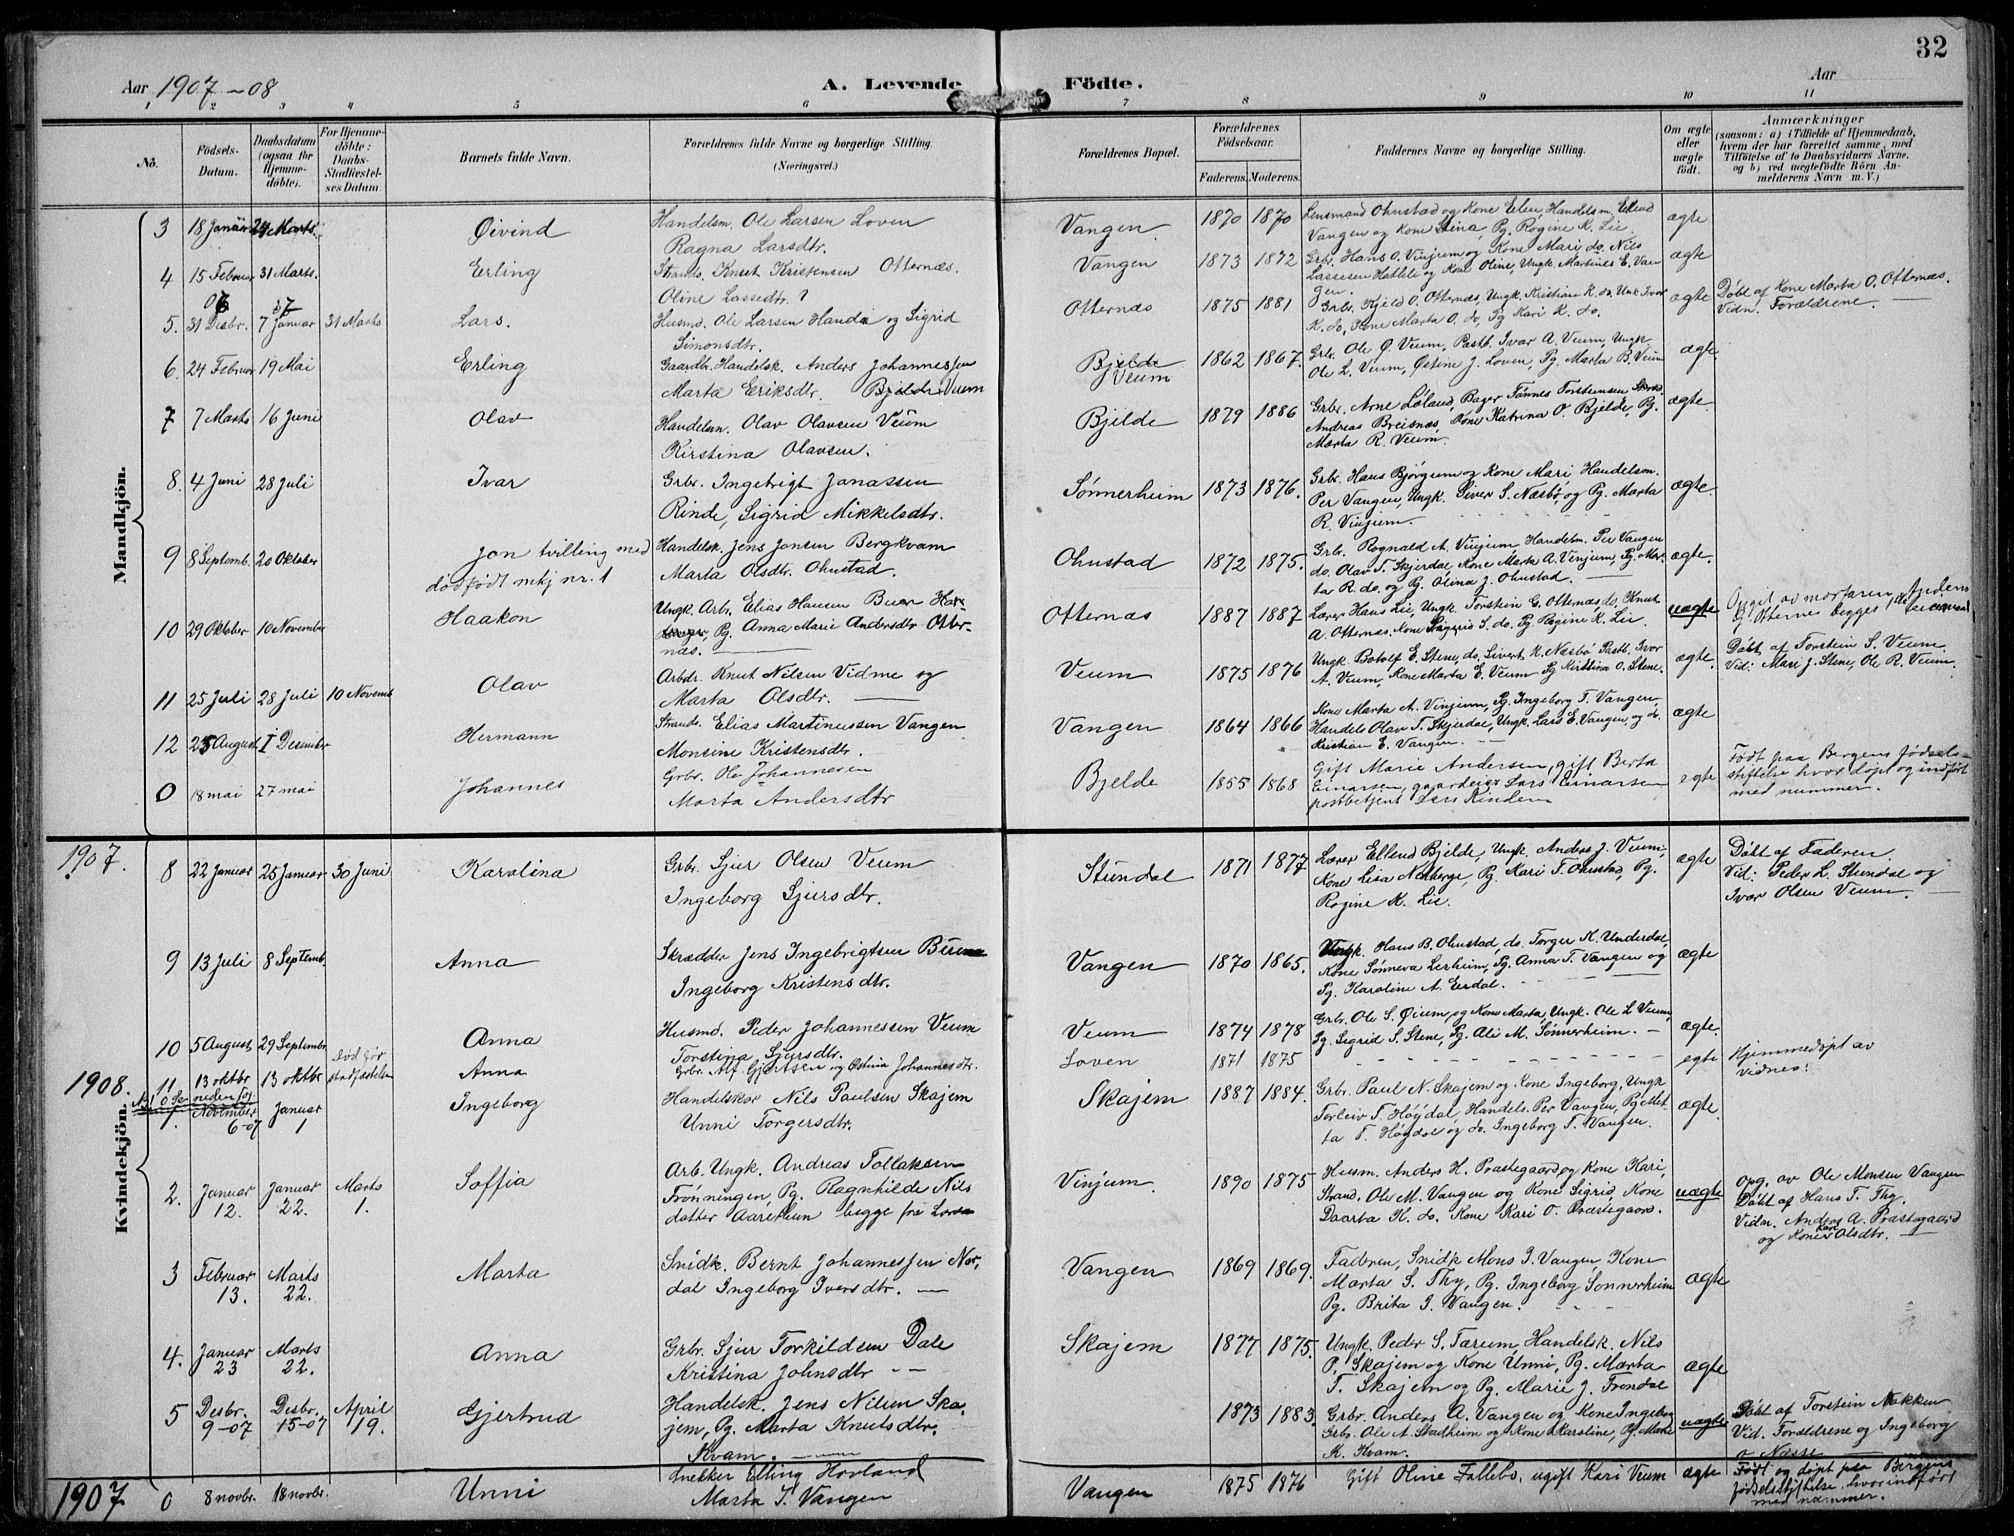 32
Aar 1907-08
A. Levende
Födte.
Aar
1 2 3 4 5 6 7 8 9 10 11
No.
Födsels-Datum.
Daabsdatum (ogsaa for Hjemme-döbte).
For Hjemme-döbte: Daabs-Stadfæstel-ses Datum.
Barnets fulde Navn.
Forældrenes fulde Navne og borgerlige Stilling. (Næringsvei.)
Forældrenes Bopæl.
Forældrenes Födselsaar.
Faderens. Moderens.
Faddernes Navne og borgerlige Stilling.
Om ægte eller uægte födt.
Anmærkninger (saasom: a) i Tilfælde af Hjemmedaab, hvem der har forrettet samme, med Tilföielse af to Daabsvidners Navne, og b) ved uægtefödte Börn Anmelderens Navn m. V.)
Mandkjön.
3 18 Januar 24 Marts. Øivind Handelsm. Ole Larsen Loven
Ragna Larsdtr. Vangen. 1870 1870 Lensmand Ohnstad og Kone Elen, Handelsm. Ellend
Vangen og Kone Stina, Pg. Rogine K. Lie. ægte
4 15 Februar 31 Marts. Erling Strands. Knut Kristensen Otternæs.
Oline Lassedtr. Vangen 1873 1872 Grbr. Hans O. Vinjum og Kone Mari do. Nils
Lassesen Hatlele og Kone Oline, Ungk. Martines E. Van
gen. ægte
5. 31 Desbr. 06 7 Januar 07 31 Marts Lars. Husmd. Ole Larsen Handa og Sigrid
Simonsdtr. Otternæs 1875 1881 Grbr. Kjeld O. Otternæs, Ungk. Kristian K. do, Unk Ivar
K. do, Kone Marta O. do, Pg Kari K. do. ægte Døbt af Kone Marta O. Otternæs.
Vidn. Forældrene.
6. 24 Februar 19 Mai Erling Gaardbr. Handelsk. Anders Johannessen
Marta Eriksdtr. Bjelde Veum Bjelde
Veum 1862 1867. Grbr. Ole Ø. Veum, Pastb. Ivar A. Veum, Ungk.
Ole L. Veum, Østine J. Loven, Pg. Marta B. Veum ægte
7 7 Marts 16 Juni Olav Handelsm. Olav Olavsen Veum
Kirstina Olavsen. Bjelde 1879 1886 Grbr. Arne Løland, Bager Tønnes Torsteinsen
Andreas Breisnæs, Kone Katrina O. Bjelde, Pg.
Marta R. Veum. ægte.
8. 4 Juni 28 Juli Ivar Grbr. Ingebrigt Janassen
Rinde, Sigrid Mikkelsdtr. Sønnerheim 1873 1876. Grbr. Hans Bjørgum og Kone Mari Handelsm.
Per Vangen, Ungk. Siver S. Næsbø og Pg. Marta
R. Vinjum. ægte.
9 8 Septemb. 20 Oktober Jon tvilling med
dødfødt mkj nr. 1 Handelsk. Jens Jonsen Bergkvam
Marta Olsdtr. Ohnstad. Ohnstad 1872 1875. Grbr. Rognald A. Vinjum Handelsm. Per Vangen
do. Olav T. Skjerdal, Kone Marta A. Vinjum, Pg. Mar
ta R. do. og Pg. Olina J. Ohnstad. ægte.
10 29 Oktober 10 November Haakon Ungk. Arb. Elias Hansen Buer
Pg. Anna Marie Andersdtr Otter-
næs. Otternæs 1887 1887 Lærer Hans Lie, Ungk. Torstein G. Otternæs do. Knut
A. Otternæs, Kone Sigrid S. do. Pg. Rogine K. Lie. uægte Opgit av morfaren Anders
G. Otternes begges 1ste
11 25 Juli 28 Juli 10 Novemb Olav Arbdr. Knut Nilsen Vidme og
Marta Olsdtr. Veum 1875 1876 Ungk. Botolf E. Stene, do. Sivert K. Næsbø Pastb. Ivar
A. Veum, Kone Marta E. Veum Pg Kristina O. Stene. ægte. Døbt af Torstein S. Veum.
Vid: Mari J. Stene, Ole R. Veum.
12 25 August 1 Desember Hermann Strands. Elias Martinussen Vangen
Monsine Kristensdtr. Vangen 1864 1866 Kone Marta A. Vinjum, Pg Ingeborg T. Vangen,
Handels Olav T. Skjerdal, Ungk. Lars E. Vangen, og do.
Kristian E. Vangen. ægte
0 18 mai 27 mai Johannes Grbr. Ole Johannesen
Marta Andersdtr Bjelde 1855 1868 Gift Marie Andersen, gift Berta
Einarsen, gaardeier Lars Einarsen
postbetjent Lars Rinden egte Født paa Bergens fødsels-
stiftelse hvor døpt og indført
med nummer.
1907.
Kvindekjön.
8 22 Januar 25 Januar 30 Juni Karolina Grbr. Sjur Olsen Veum
Ingeborg Sjursdtr. Stundal 1871 1877 Lærer Ellend Bjelde, Ungk. Anders J. Veum,
Kone Lisa Nesberge, Pg. Kari T. Ohnstad, Pg.
Rogine K. Lie. ægte Døbt af Faderen.
Vid: Peder L. Stundal og
Ivar Olsen Veum.
9 13 Juli 8 Septemb. Anna Skrædder Jens Ingebrigtsen
Ingeborg Kristensdtr. Vangen 1870 1865. Ungk. Hans B. Ohnstad, do. Torger K. Underdal,
Kone Sønneva Lerheim, Pg. Anna T. Vangen og
Pg. Karoline A. Erdal. ægte
10 5 August 29 Septembr. Anna Husmd. Peder Johannessen Veum
Torstina Sjursdtr. Veum 1874 1878 Grbr. Ole S. Øium og Kone Marta, Ungk. Ole L Veum,
Pg. Sigrid S. Stene, Pg. Ali M. Sønnerheim. ægte.
11 13 oktbr 13 oktbr død før
stadfæstelse Anna Grbr. Alf Gjertsen og Østina Johannesdtr. Loven 1871 1875 egte Hjemmedøpt av
vidnes:
1908.
Nr. 0 Se neden for
1. November 6-07 Januar 1 Ingeborg Handelskar Nils Paulsen Skajem
Unni Torgersdtr. Skajem 1887 1884. Grbr. Paul N. Skajem og Kone Ingeborg, Ungk
Torleiv T. Høydal, Handels. Per Vangen, Pg Met
ta T. Høydal og do. Ingeborg T. Vangen. ægte.
2. Januar 12. Januar 22. Marts 1. Soffia Arb. Ungk. Andreas Tollaksen
Frønningen, Pg. Ragnhilde Nils
datter Aarethun begge fra Vinjum. 1890 1875 Husm. Anders H. Præstegaard og Kone Kari,
Strand. Ole M. Vangen og Kone Sigrid, Kone
Daarta K. do. Kone Kari O. Præstegaard. uægte opg. av Ole Monsen Vangen
Døbt af Hans T. Thy.
Vidn. Anders A. Præstegaard
og Kone Kari Olsdtr.
3 Februar 13. Marts 22. Marta Snidk. Bernt Johannessen Nor,
dal Ingeborg Iversdtr. Vangen 1869 1869. Fadren, Snidk Mons I. Vangen Kone
Marta S. Thy, Pg. Ingeborg Sonnerheim
Pg. Brita I. Vangen. ægte
4. Januar 23 Marts 22. Anna Grbr. Sjur Torkildsen Dale
Kristina Johnsdtr Skajem 1877 1875. Ungk. Peder S. Tærum, Handelsk. Nils
P. Skajem og Kone Unni, Pg. Marta
T. Skajem og Pg. Marie J. Frondal ægte
5 Desbr. 9-07 Desbr. 15-07 April 19. Gjertrud Handelsk. Jens Nilsen Ska,
jem, Pg. Marta Knutsdtr.
Kvam. 1873 1883. Grbr. Anders A. Vangen og Kone Ingeborg
Grbr. Ole A. Stadheim og Kone Karoline, Pg. Mari
K. Kvam. uægte Døbt af Torstein Nakken
Vid. Forældrene og Ingeborg
O. Næsse
1907 0 8 novbr. 18 novbr. Unni Snekker Elling Hovland
Marta T. Vangen Vangen 1875 1876 Gift Oline Falleb, ugift Kari Veum ægte Født og døpt paa Bergens
fødselsstiftelse, hvor indført
med nummer.